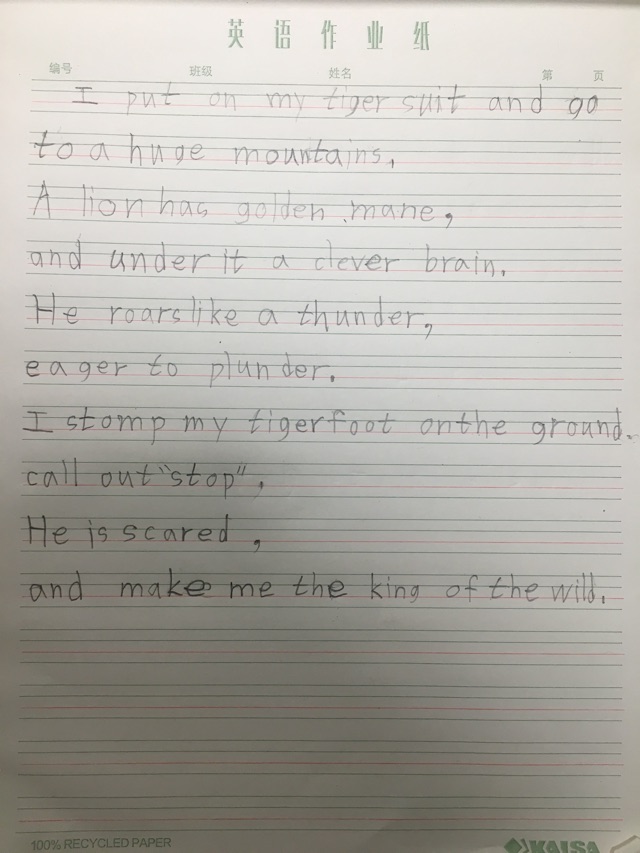 英语作业纸
编号 班级 姓名 第 页
I put on my tiger suit and go
to a huge mountains,
A lion has golden mane,
and under it a clever brain.
He roars like a thunder,
eager to plunder.
I stomp my tiger foot on the ground.
call out "stop",
He is scared,
and make me the king of the wild.
100% RECYCLED PAPER
KAISA